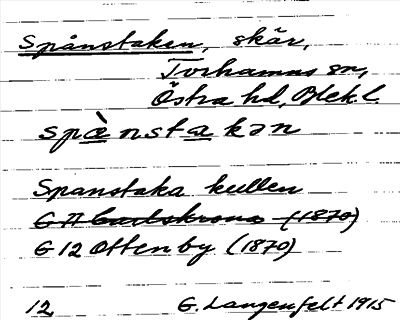 Spånstaken, skär,
Torhamns sn,
Östra hd, Blek. l.
spæ̀nstakən
Spanstaka kullen
G 11 Carlskrona (1870)
G 12 Ottenby (1870)
12 G. Langenfelt 1915